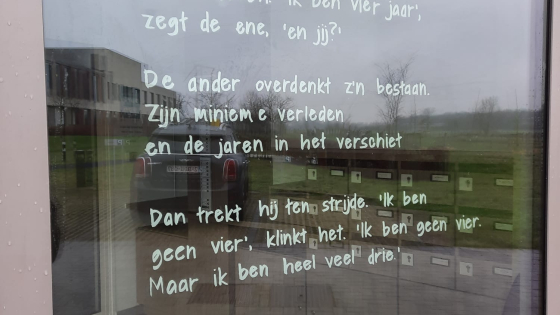 'Ik ben vier jaar',
zegt de ene, 'en jij?'
De ander overdenkt z'n bestaan.
Zijn minieme verleden
en de jaren in het verschiet
Dan trekt hij ten strijde. 'Ik ben
geen vier', klinkt het. 'Ik ben geen vier.
Maar ik ben heel veel drie.'